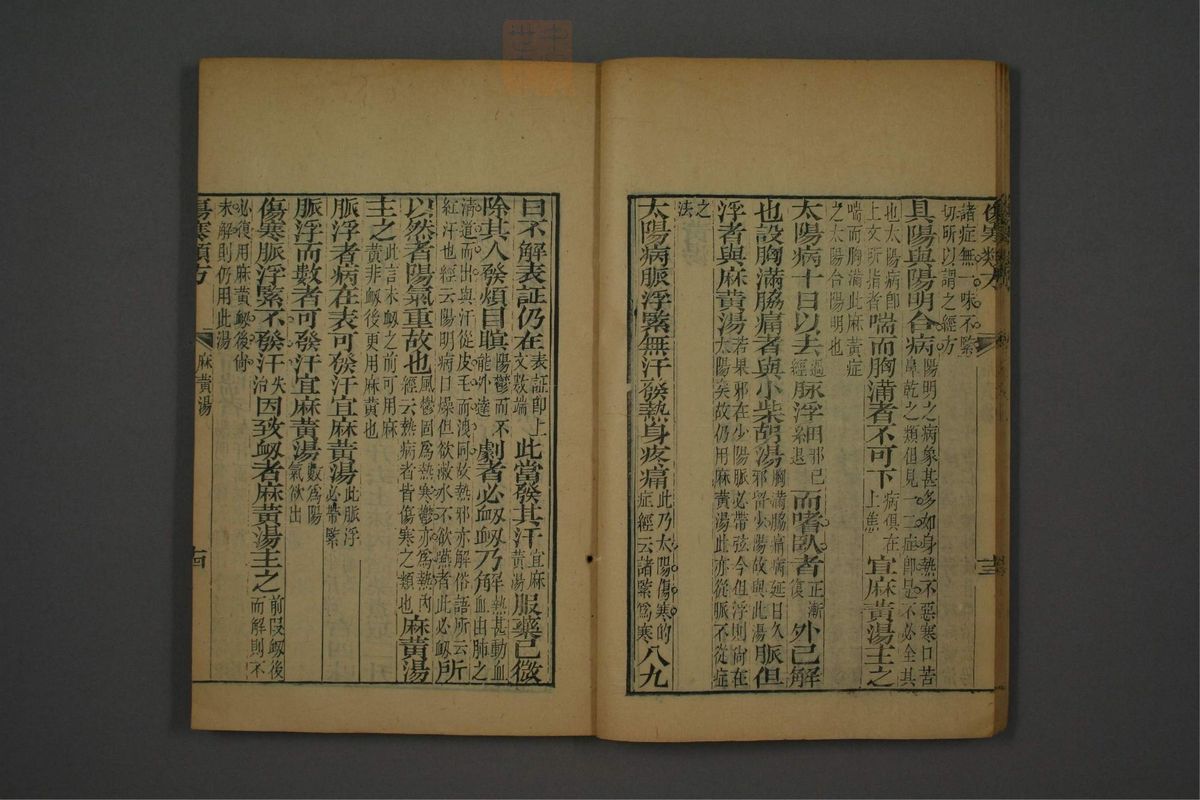 傷寒類方
十三
諸症無一味不緊
切所以謂之經方
具陽與陽明合病陽明之病象甚多如身熱不惡寒口苦鼻乾之類但見一二症即是不必全具
也太陽病即上文所指者喘而胸滿者不可下病俱在上焦宜麻黃湯主之
喘而胸滿此麻黃症
之太陽合陽明也
太陽病十日以去過經脉浮細邪已退而嗜臥者正漸復外已解
也設胸滿脇痛者與小柴胡湯胸滿脇痛病延日久邪留少陽故與此湯脈但
浮者與麻黃湯若果邪在少陽脈必帶弦今但浮則尚在太陽矣故仍用麻黃湯此亦從脈不從症
之法
太陽病脈浮緊無汗發熱身疼痛此乃太陽傷寒的症經云諸緊爲寒八九
日不解表証仍在表証即上文數端此當發其汗宜麻黃湯服藥已微
除其人發煩目瞑陽鬱而不能外達劇者必衂衂乃解熱甚動血血由肺之
清道而出與汗從皮毛而洩同故熱邪亦解俗語所云紅汗也經云陽明病口燥但欲漱水不欲嚥者此必衂所
以然者陽氣重故也風鬱固爲熱寒鬱亦爲熱內經云熱病者皆傷寒之類也麻黃湯
主之此言未衂之前可用麻黃非衂後更用麻黃也
脈浮者病在表可發汗宜麻黃湯此脈浮必帶緊
脈浮而數者可發汗宜麻黃湯數爲陽氣欲出
傷寒脈浮緊不發汗失治因致衂者麻黃湯主之前段衂後而解則不
必復用麻黃衂後尚
未解則仍用此湯
傷寒類方
麻黃湯
十四